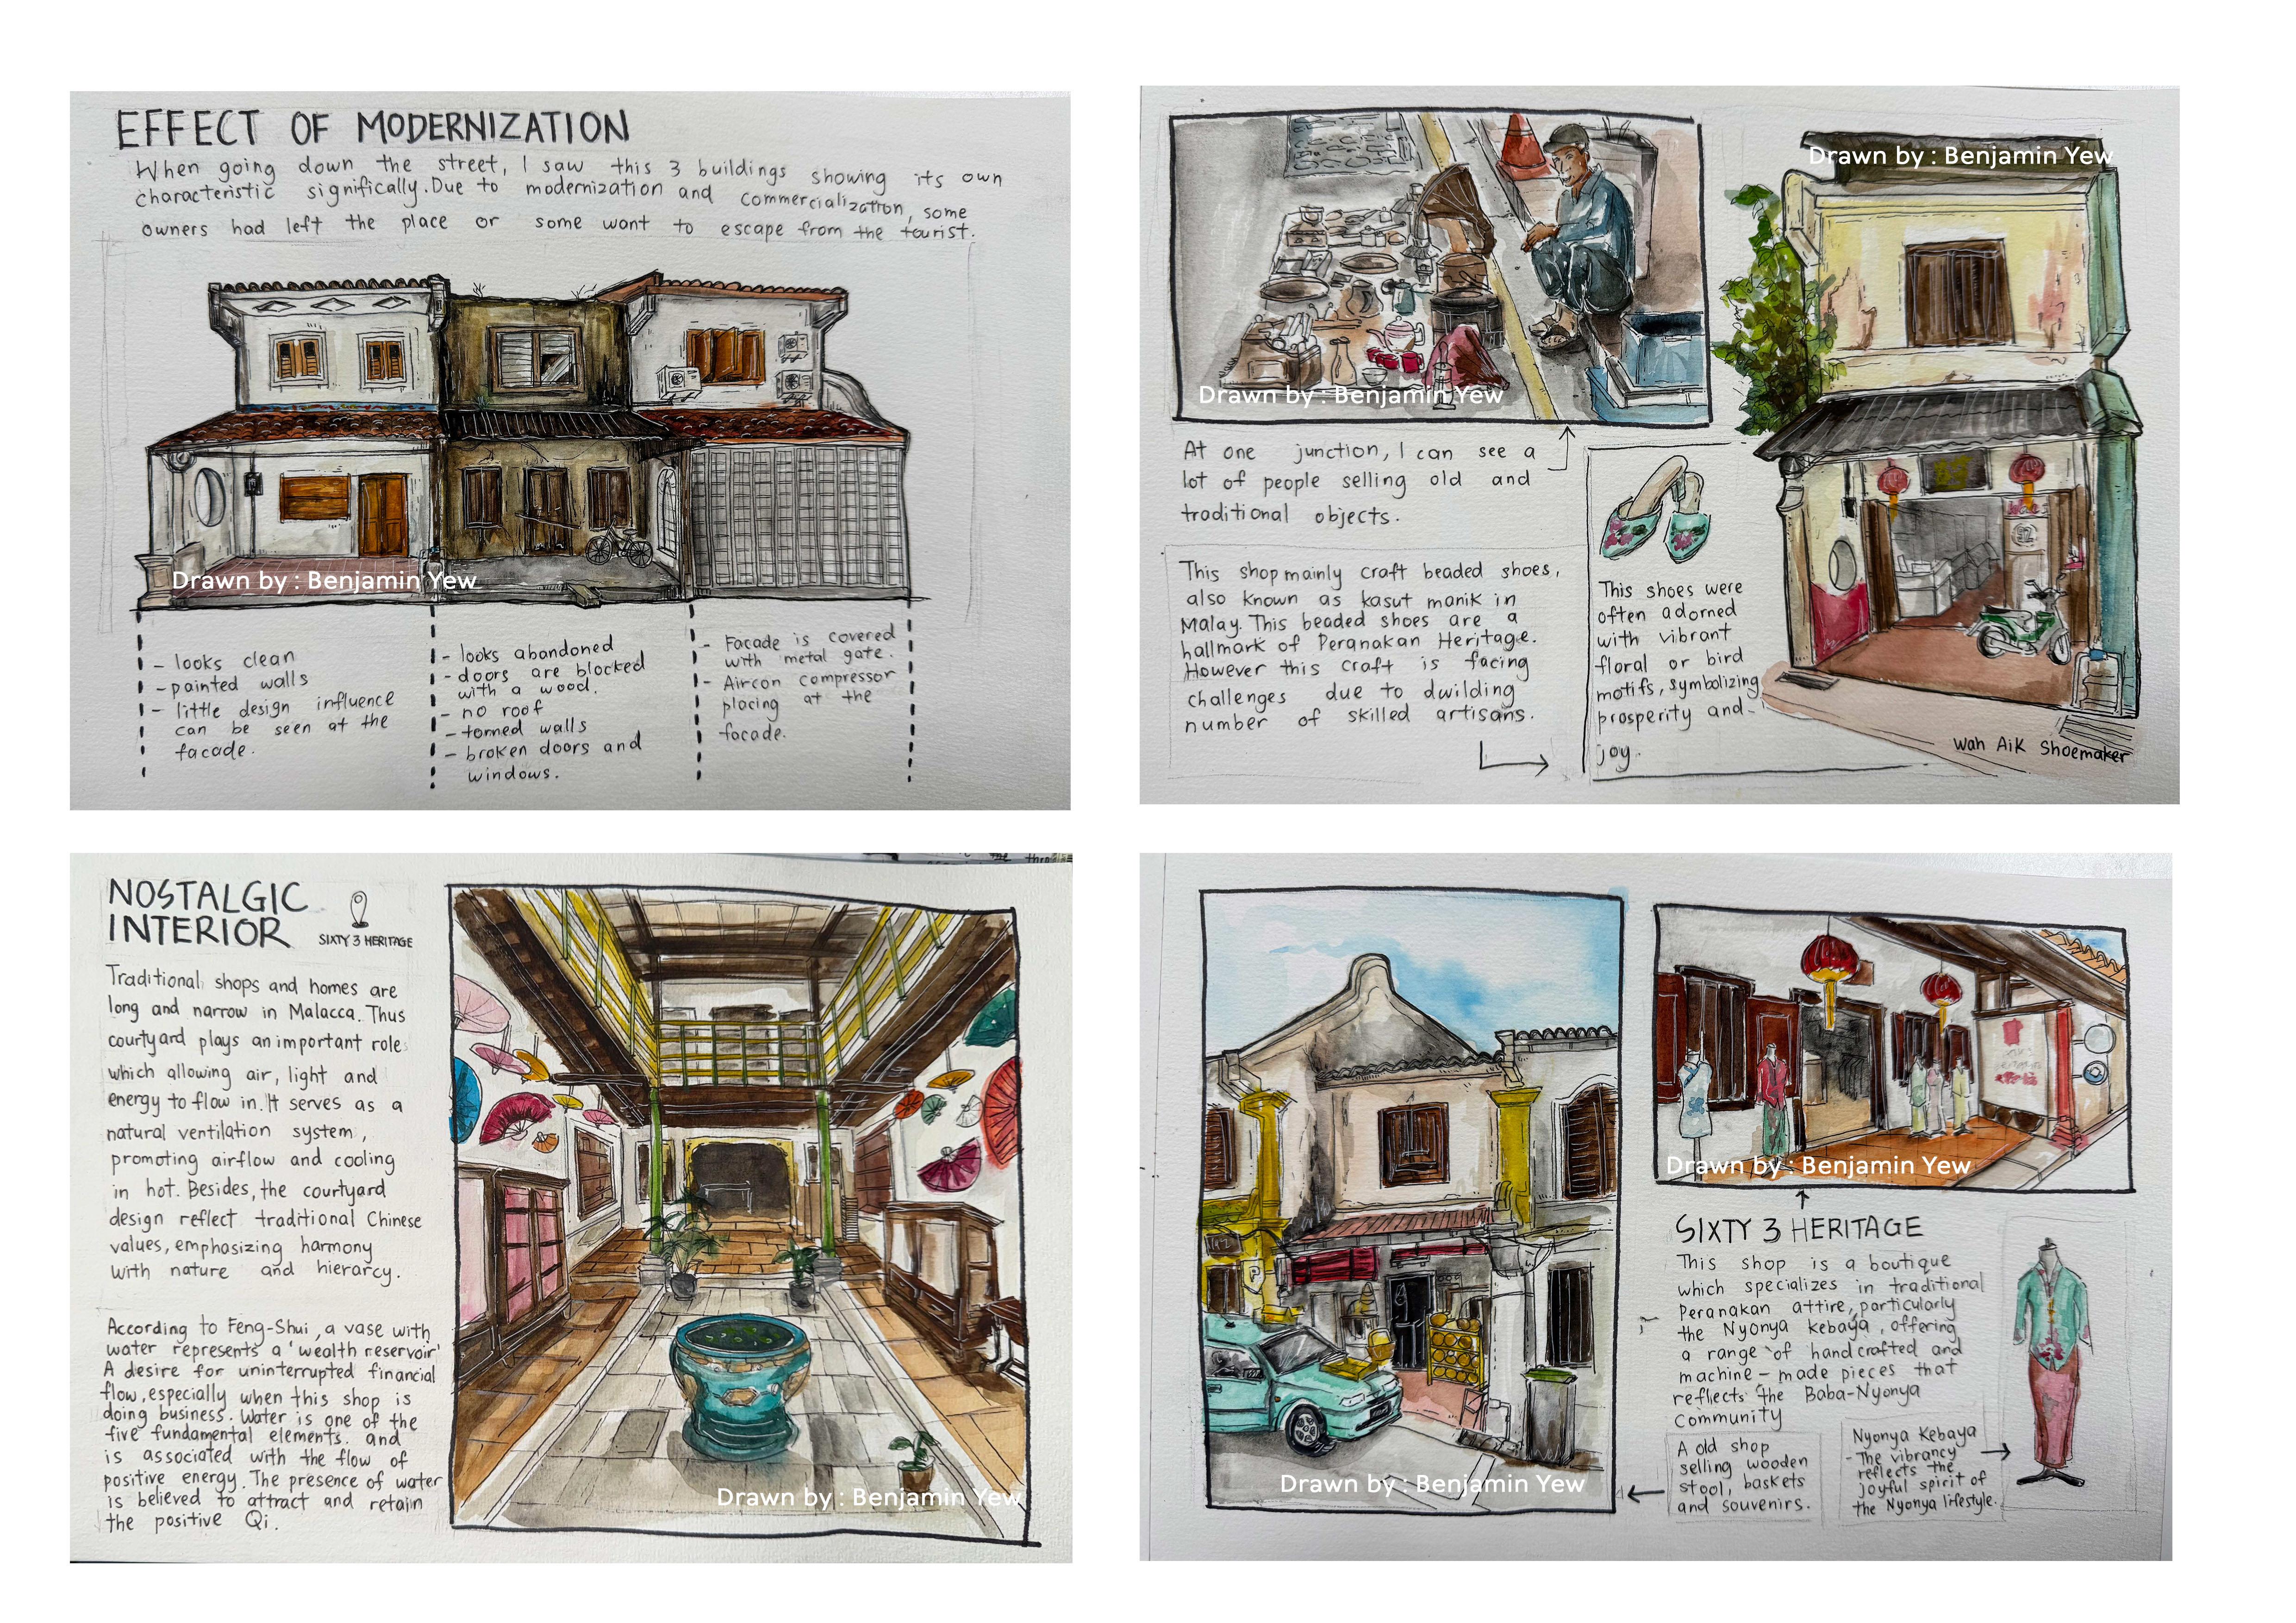 EFFECT OF MODERNIZATION
When going down the street, I saw this 3 buildings showing its own
characteristic significally. Due to modernization and commercialization, some
owners had left the place or some want to escape from the tourist.
Drawn by : Benjamin Yew
- looks clean
- painted walls
- little design influence
can be seen at the
facade.
- looks abandoned
- doors are blocked
with a wood.
- no roof
- torned walls
- broken doors and
windows.
- Facade is covered
with metal gate.
- Aircon compressor
placing at the
facade.
Drawn by : Benjamin Yew
Drawn by : Benjamin Yew
At one junction, I can see a
lot of people selling old and
traditional objects.
This shop mainly craft beaded shoes,
also known as kasut manik in
Malay. This beaded shoes are a
hallmark of Peranakan Heritage.
However this craft is facing
challenges due to dwilding
number of skilled artisans.
This shoes were
often adorned
with vibrant
floral or bird
motifs, symbolizing
prosperity and
joy.
Wah Aik Shoemaker
NOSTALGIC
INTERIOR
SIXTY 3 HERITAGE
Traditional shops and homes are
long and narrow in Malacca. Thus
courtyard plays an important role
which allowing air, light and
energy to flow in. It serves as a
natural ventilation system,
promoting airflow and cooling
in hot. Besides, the courtyard
design reflect traditional Chinese
values, emphasizing harmony
with nature and hierarcy.
According to Feng-Shui, a vase with
water represents a 'wealth reservoir'
A desire for uninterrupted financial
flow, especially when this shop is
doing business. Water is one of the
five fundamental elements. and
is associated with the flow of
positive energy. The presence of water
is believed to attract and retain
the positive Qi.
Drawn by : Benjamin Yew
Drawn by : Benjamin Yew
Drawn by : Benjamin Yew
SIXTY 3 HERITAGE
This shop is a boutique
which specializes in traditional
Peranakan attire, particularly
the Nyonya kebaya, offering
a range of handcrafted and
machine-made pieces that
reflects the Baba-Nyonya
Community
A old shop
selling wooden
stool, baskets
and souvenirs.
Nyonya Kebaya
- The vibrancy
reflects the
joyful spirit of
the Nyonya lifestyle.